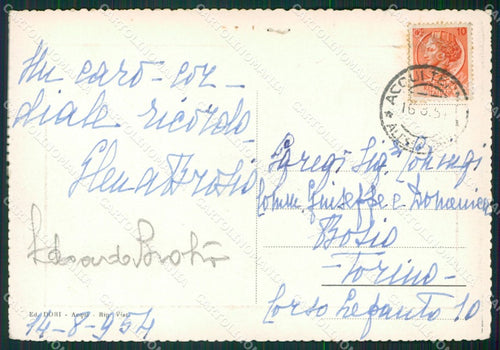 Un caro - cor
diale ricordo
Elena Brosio
Edoardo Brosio
Ed. DOBI - Acqui - Rip. Viet.
14-8-954
10
ACQUI TER
16.8.5
Egregi Sig.ri Coniugi
Comm. Giuseppe e Domenica
Bosio
Torino
Corso Lepanto 10
CARTOLINOMANIA